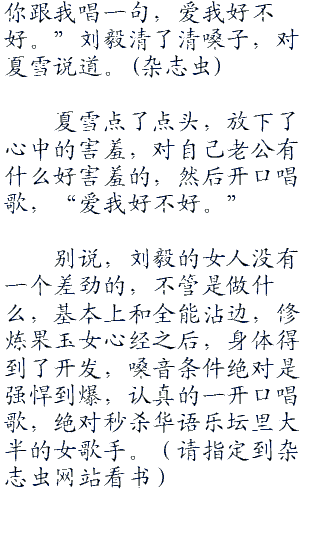 你跟我唱一句，爱我好不
好。”刘毅清了清嗓子，对
夏雪说道。(杂志虫)
夏雪点了点头，放下了
心中的害羞，对自己老公有
什么好害羞的，然后开口唱
歌，“爱我好不好。”
别说，刘毅的女人没有
一个差劲的，不管是做什
么，基本上和全能沾边，修
炼果玉女心经之后，身体得
到了开发，嗓音条件绝对是
强悍到爆，认真的一开口唱
歌，绝对秒杀华语乐坛里大
半的女歌手。（请指定到杂
志虫网站看书）